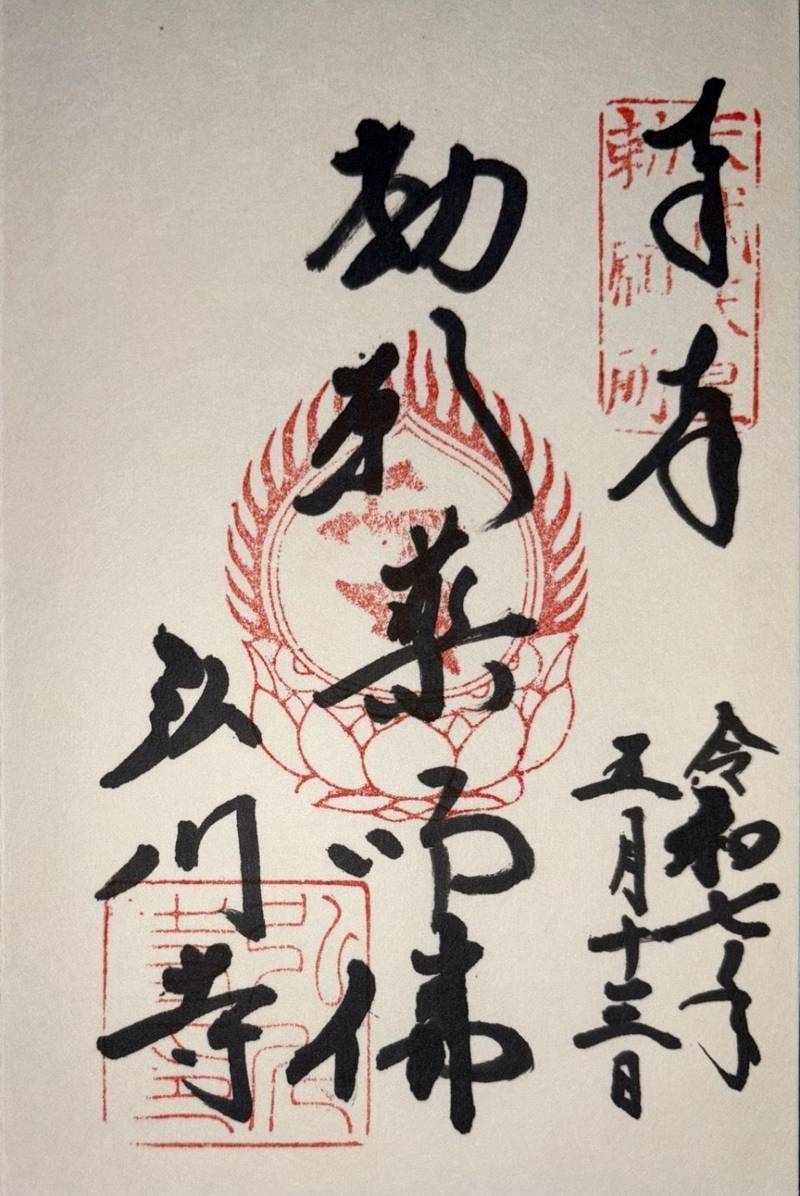 天武天皇
勅願所
奉拝
令和七年
五月十三日
勅願薬師佛
弘川寺